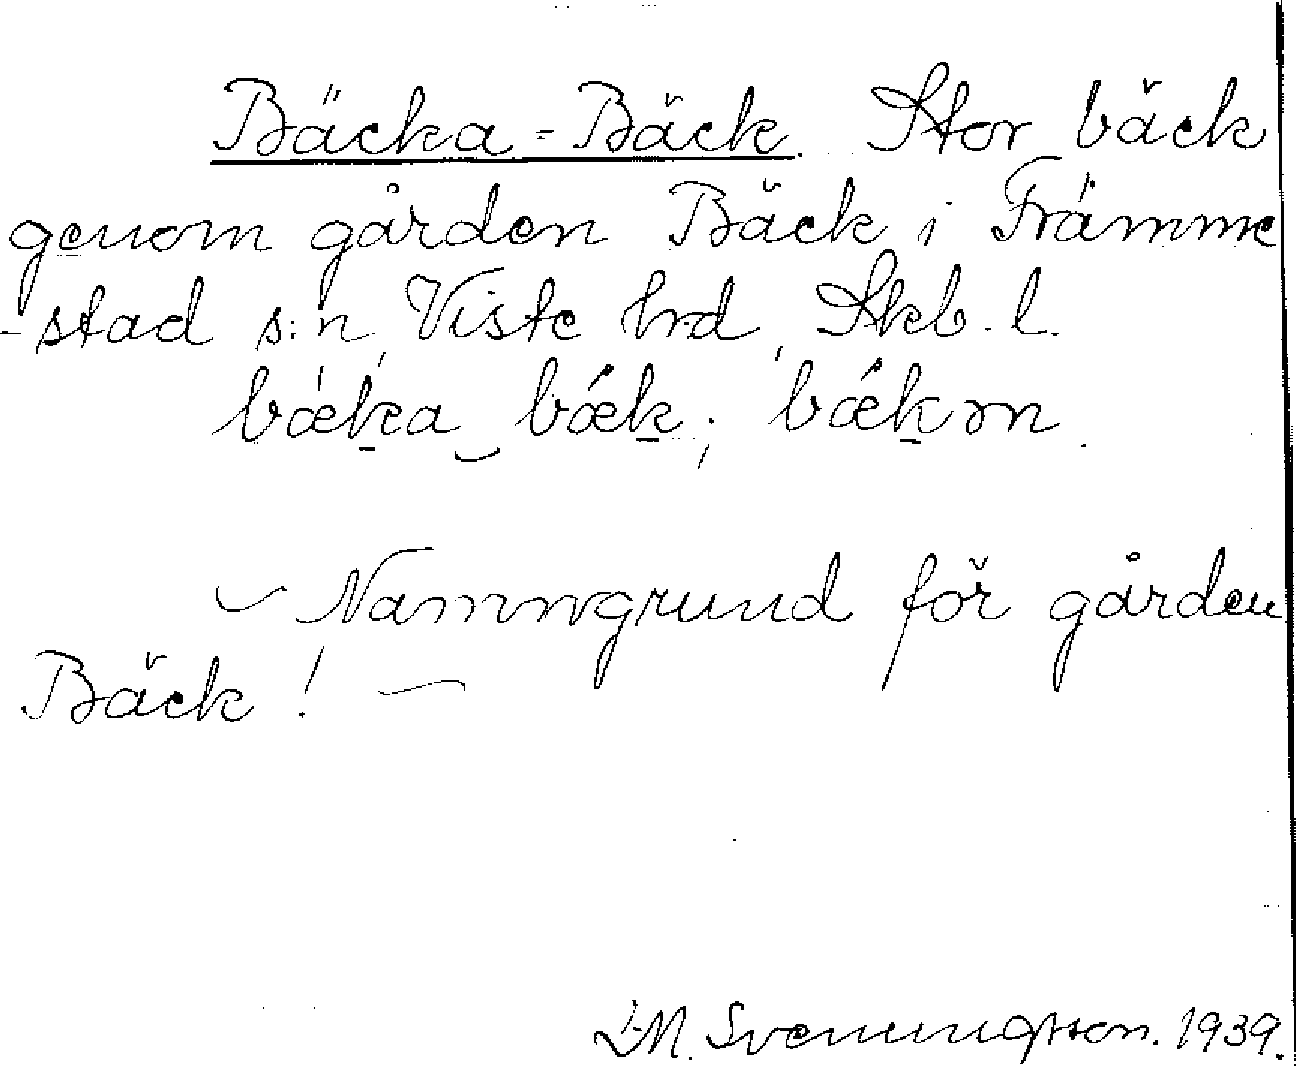 Bäcka-Bäck. Stor bäck
genom gården Bäck i Främme
-stad s:n, Viste hrd, Skb. l.
bæka bæk; bækən.
~ Namngrund för gården
Bäck! ~
Svenungsson. 1939.